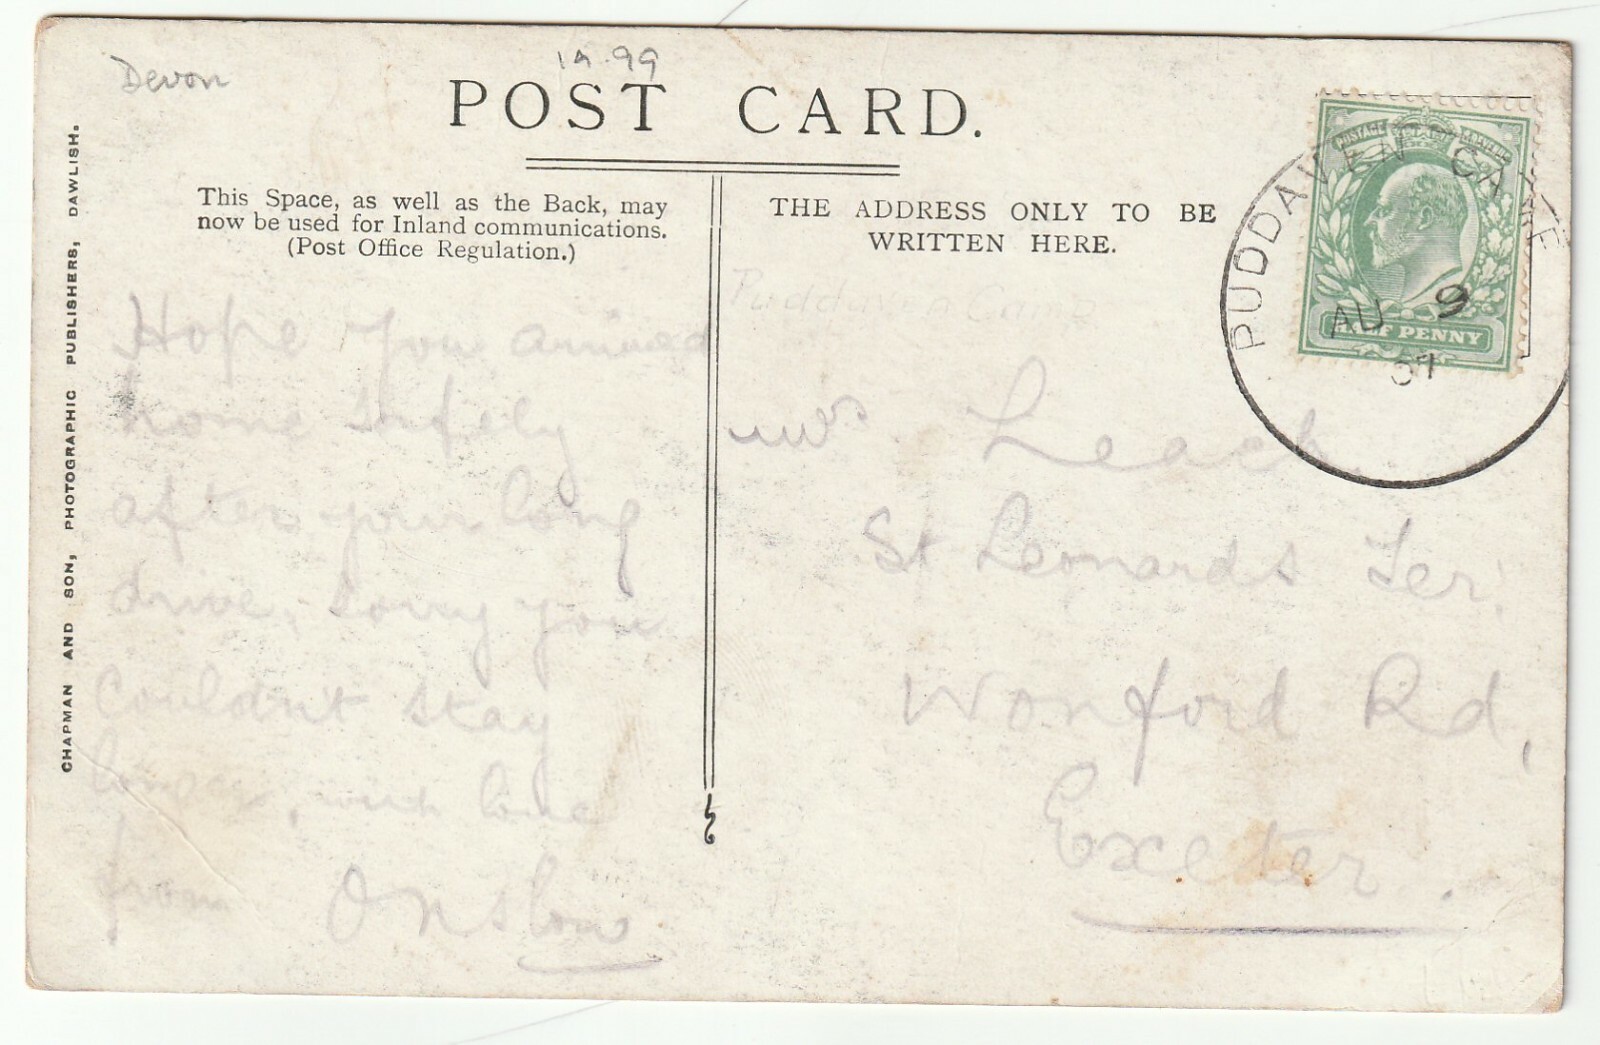 Devon
19.99
POST CARD.
This Space, as well as the Back, may
now be used for Inland communications.
(Post Office Regulation.)
THE ADDRESS ONLY TO BE
WRITTEN HERE.
CHAPMAN AND SON, PHOTOGRAPHIC PUBLISHERS, DAWLISH.
PUDDAVEN CAMP
AU 9
07
POSTAGE
HALF PENNY
Puddaven Camp
Hope you arrived
home safely
after your long
drive, sorry you
couldn't stay
longer, with love
from Onslow
Mrs. Leach
St Leonards Ter.
Wonford Rd,
Exeter.